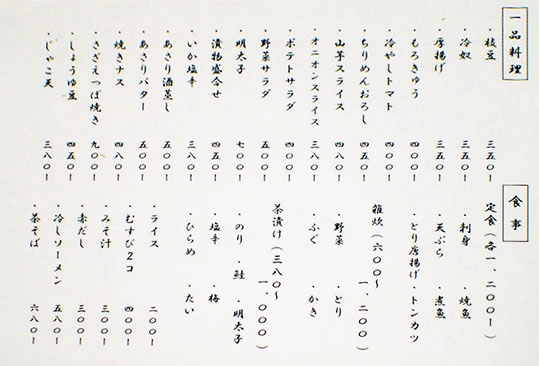 一品料理
・枝豆 三五〇ー
・冷奴 三五〇ー
・厚揚げ 三五〇ー
・もろきゅう 四〇〇ー
・冷やしトマト 四〇〇ー
・ちりめんおろし 四五〇ー
・山芋スライス 四八〇ー
・オニオンスライス 三八〇ー
・ポテトサラダ 四〇〇ー
・野菜サラダ 五〇〇ー
・明太子 七〇〇ー
・漬物盛合せ 四五〇ー
・いか塩辛 三八〇ー
・あさり酒蒸し 五〇〇ー
・あさりバター 五〇〇ー
・焼きナス 四八〇ー
・さざえつぼ焼き 九〇〇ー
・しょうゆ豆 四五〇ー
・じゃこ天 三八〇ー
食事
定食(各一、二〇〇ー)
・刺身 ・焼魚
・天ぷら ・煮魚
・とり唐揚げ ・トンカツ
雑炊(六〇〇〜
一、二〇〇)
・野菜 ・とり
・ふぐ ・かき
茶漬け(三八〇〜
一、〇〇〇)
・のり ・鮭 ・明太子
・塩辛 ・梅
・ひらめ ・たい
・ライス 二〇〇ー
・むすび2コ 四〇〇ー
・みそ汁 三〇〇ー
・赤だし 三〇〇ー
・冷しソーメン 五八〇ー
・茶そば 六八〇ー